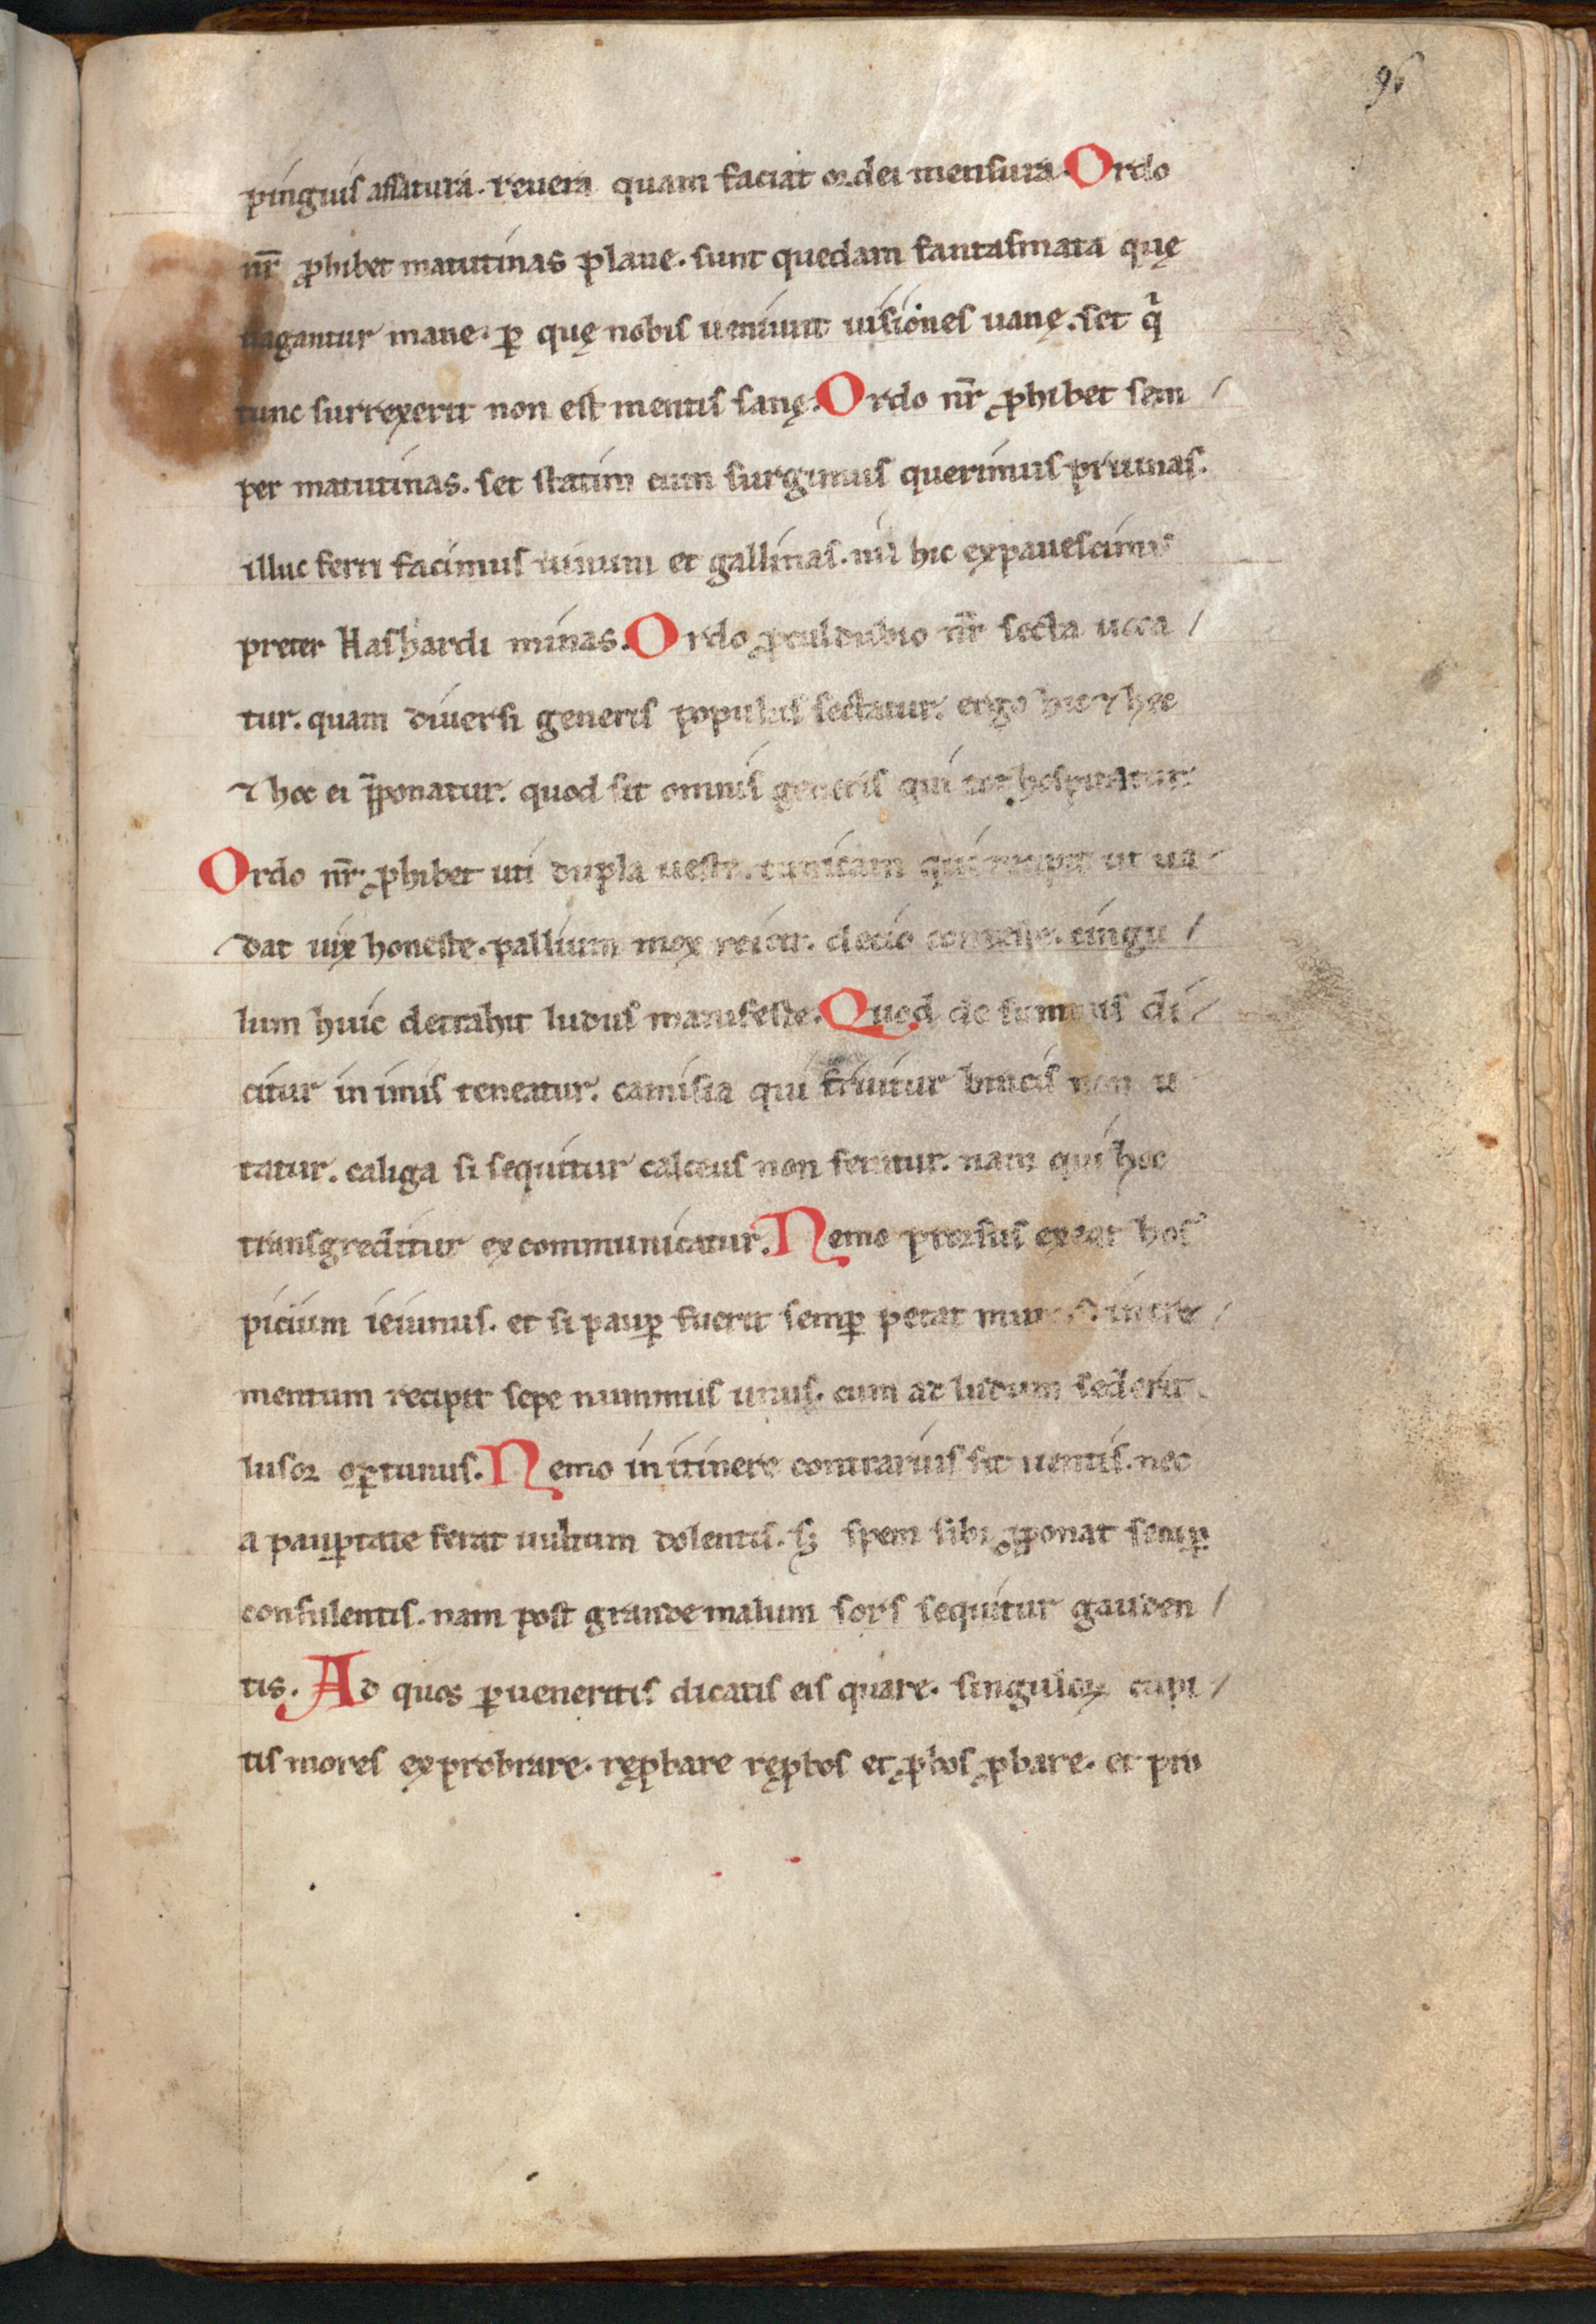 96
pinguis assatura. reuera quam faciat ordei mensura. Ordo
nr̄ ꝓhibet matutinas plane. sunt quedam fantasmata quę
uagantur mane. ꝑ quę nobis ueniunt uisiones uanę. set q̇
tunc surrexerit non est mentis sanę. Ordo nr̄ ꝓhibet sem /
per matutinas. set statim cum surgimus querimus pruinas.
illuc ferri facimus uinum et gallinas. nil hic expauescimus
preter Hashardi minas. Ordo ꝓculdubio nr̄ secta uoca /
tur. quam diuersi generis populus sectatur. ergo hic ⁊ hec
⁊ hoc ei p̄ponatur. quod sit omnis generis qui tot hospitatur.
Ordo nr̄ ꝓhibet uti dupla ueste. tunicam qui recipit ut ua
dat uix honeste. pallium mox reicit. decio conteste. cingu /
lum huic detrahit ludus manifeste. Quod de summis di /
citur in imis teneatur. camisia qui fruitur bracis non u
tatur. caliga si sequitur calceus non feratur. nam qui hoc
transgreditur excommunicatur. Nemo prorsus exeat hos
picium ieiunus. et si pauꝑ fuerit semꝑ petat munus. incre /
mentum recipit sepe nummus unus. cum ad ludum sederit
lusor oꝑtunus. Nemo in itinere contrarius sit uentis. nec
a pauꝑtate ferat uultum dolentis. sꝫ spem sibi ꝓponat semꝑ
consulentis. nam post grande malum sors sequitur gauden /
tis. Ad quos ꝑueneritis dicatis eis quare. singuloꝝ cupi /
tis mores exprobrare. ręꝓbare ręꝓbos et ꝓbos ꝓbare. et pro